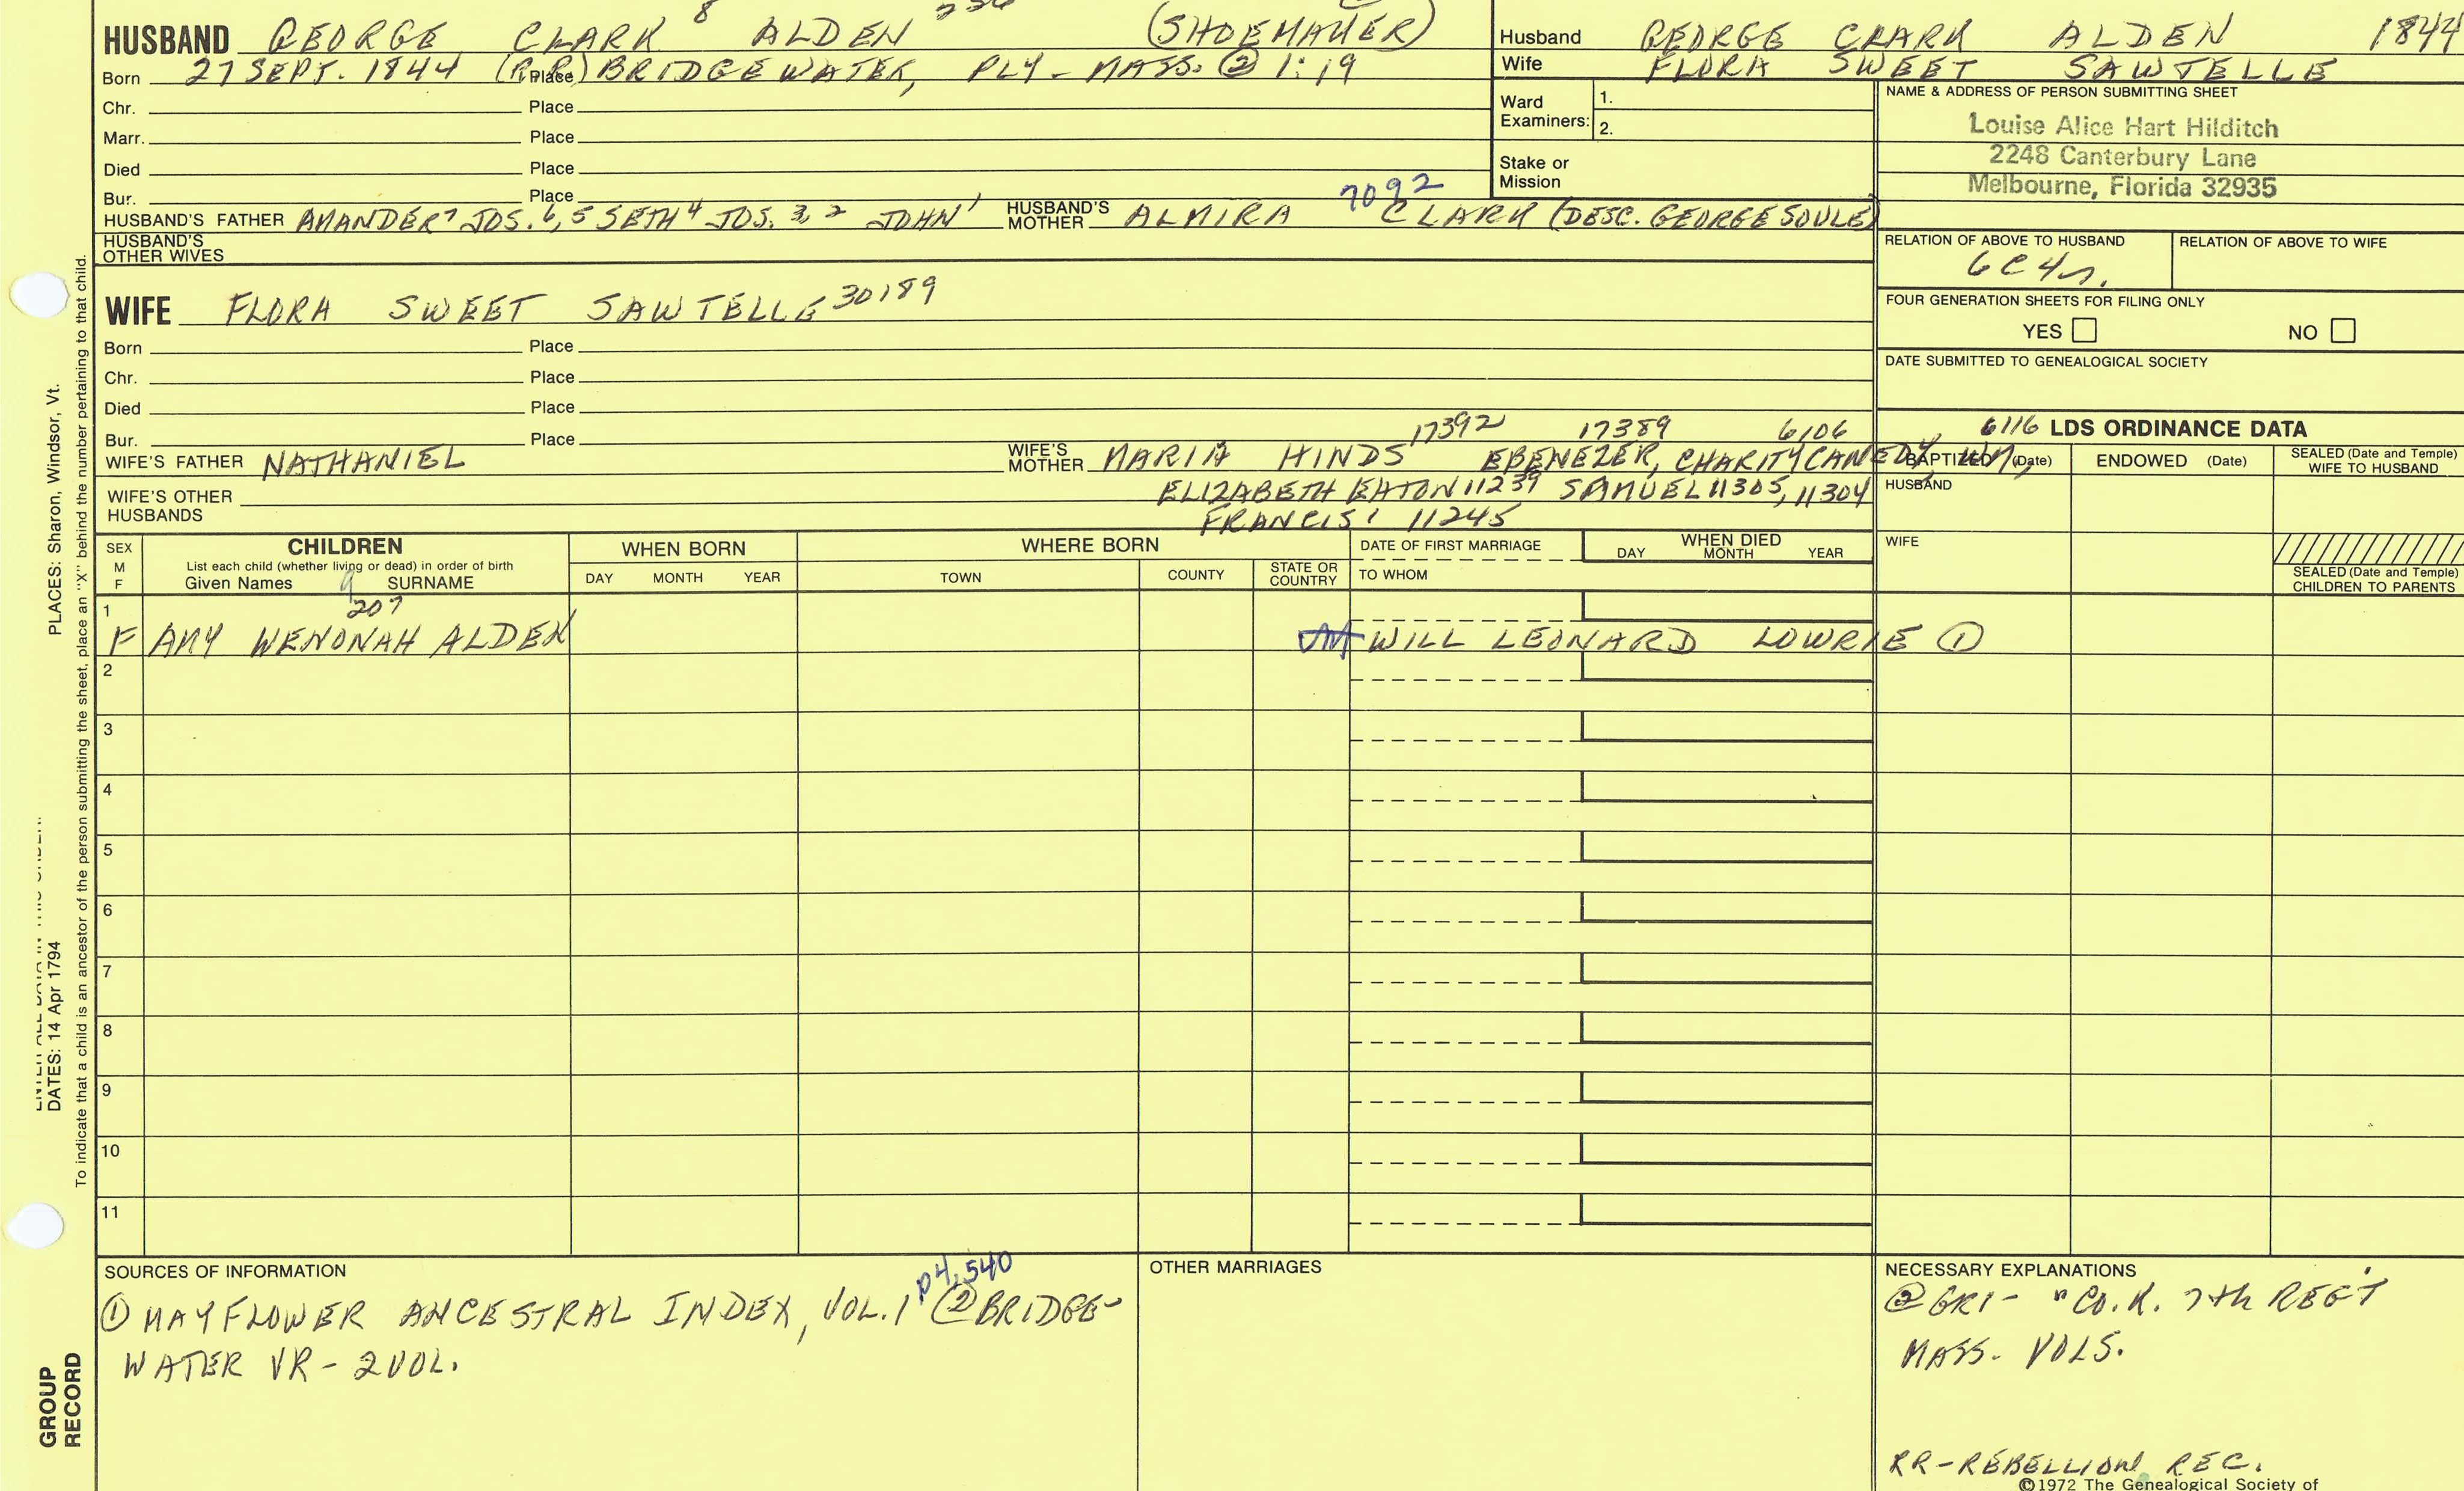 HUSBAND GEORGE CLARK 8 ALDEN (SHOEMAKER)
Born 27 SEPT. 1844 (R.R.) Place BRIDGEWATER, PLY - MASS. ② 1:19
Chr. Place
Marr. Place
Died Place
Bur. Place
HUSBAND'S FATHER AMANDER 7 JOS. 6, 5 SETH 4 JOS. 3, 2 JOHN 1 HUSBAND'S MOTHER ALMIRA 7092 CLARK (DESC. GEORGE SOULE)
HUSBAND'S OTHER WIVES
Husband GEORGE CLARK ALDEN 1844
Wife FLORA SWEET SAWTELLE
Ward Examiners: 1.
2.
Stake or Mission
NAME & ADDRESS OF PERSON SUBMITTING SHEET
Louise Alice Hart Hilditch
2248 Canterbury Lane
Melbourne, Florida 32935
RELATION OF ABOVE TO HUSBAND RELATION OF ABOVE TO WIFE
6C4r.
FOUR GENERATION SHEETS FOR FILING ONLY
YES NO
DATE SUBMITTED TO GENEALOGICAL SOCIETY
WIFE FLORA SWEET SAWTELLE 30189
Born Place
Chr. Place
Died Place
Bur. Place
17392 17389 6106 6116
WIFE'S FATHER NATHANIEL WIFE'S MOTHER MARIA HINDS EBENEZER, CHARITY CANEDY, WM,
WIFE'S OTHER HUSBANDS ELIZABETH EATON 11239 SAMUEL 11305, 11304
FRANCIS 1 11245
LDS ORDINANCE DATA
BAPTIZED (Date) ENDOWED (Date) SEALED (Date and Temple) WIFE TO HUSBAND
HUSBAND
WIFE
SEALED (Date and Temple) CHILDREN TO PARENTS
SEX M F CHILDREN WHEN BORN WHERE BORN DATE OF FIRST MARRIAGE WHEN DIED
List each child (whether living or dead) in order of birth
Given Names SURNAME DAY MONTH YEAR TOWN COUNTY STATE OR COUNTRY TO WHOM DAY MONTH YEAR
9 207
1 F AMY WENONAH ALDEN WILL LEONARD LOWRIE ①
2
3
4
5
6
7
8
9
10
11
SOURCES OF INFORMATION
① MAYFLOWER ANCESTRAL INDEX, VOL. 1 p4,540 ② BRIDGE-
WATER VR - 2 VOL.
OTHER MARRIAGES
NECESSARY EXPLANATIONS
② GR1 - "CO. K. 7th REGT
MASS. VOLS.
RR - REBELLION REC.
©1972 The Genealogical Society of
PLACES: Sharon, Windsor, Vt.
DATES: 14 Apr 1794
To indicate that a child is an ancestor of the person submitting the sheet, place an "X" behind the number pertaining to that child.
GROUP RECORD